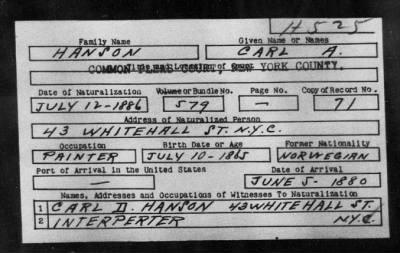 H 525
Family Name Given Name or Names
HANSON CARL A.
Title and Location of Court
COMMON PLEAS COURT, NEW YORK COUNTY.
Date of Naturalization Volume or Bundle No. Page No. Copy of Record No.
JULY 12-1886 579 — 71
Address of Naturalized Person
43 WHITEHALL ST. N.Y.C.
Occupation Birth Date or Age Former Nationality
PAINTER JULY 10-1865 NORWEGIAN
Port of Arrival in the United States Date of Arrival
— JUNE 5- 1880
Names, Addresses and Occupations of Witnesses To Naturalization
1 CARL D. HANSON 43 WHITEHALL ST.
2 INTERPERTER N.Y.C.